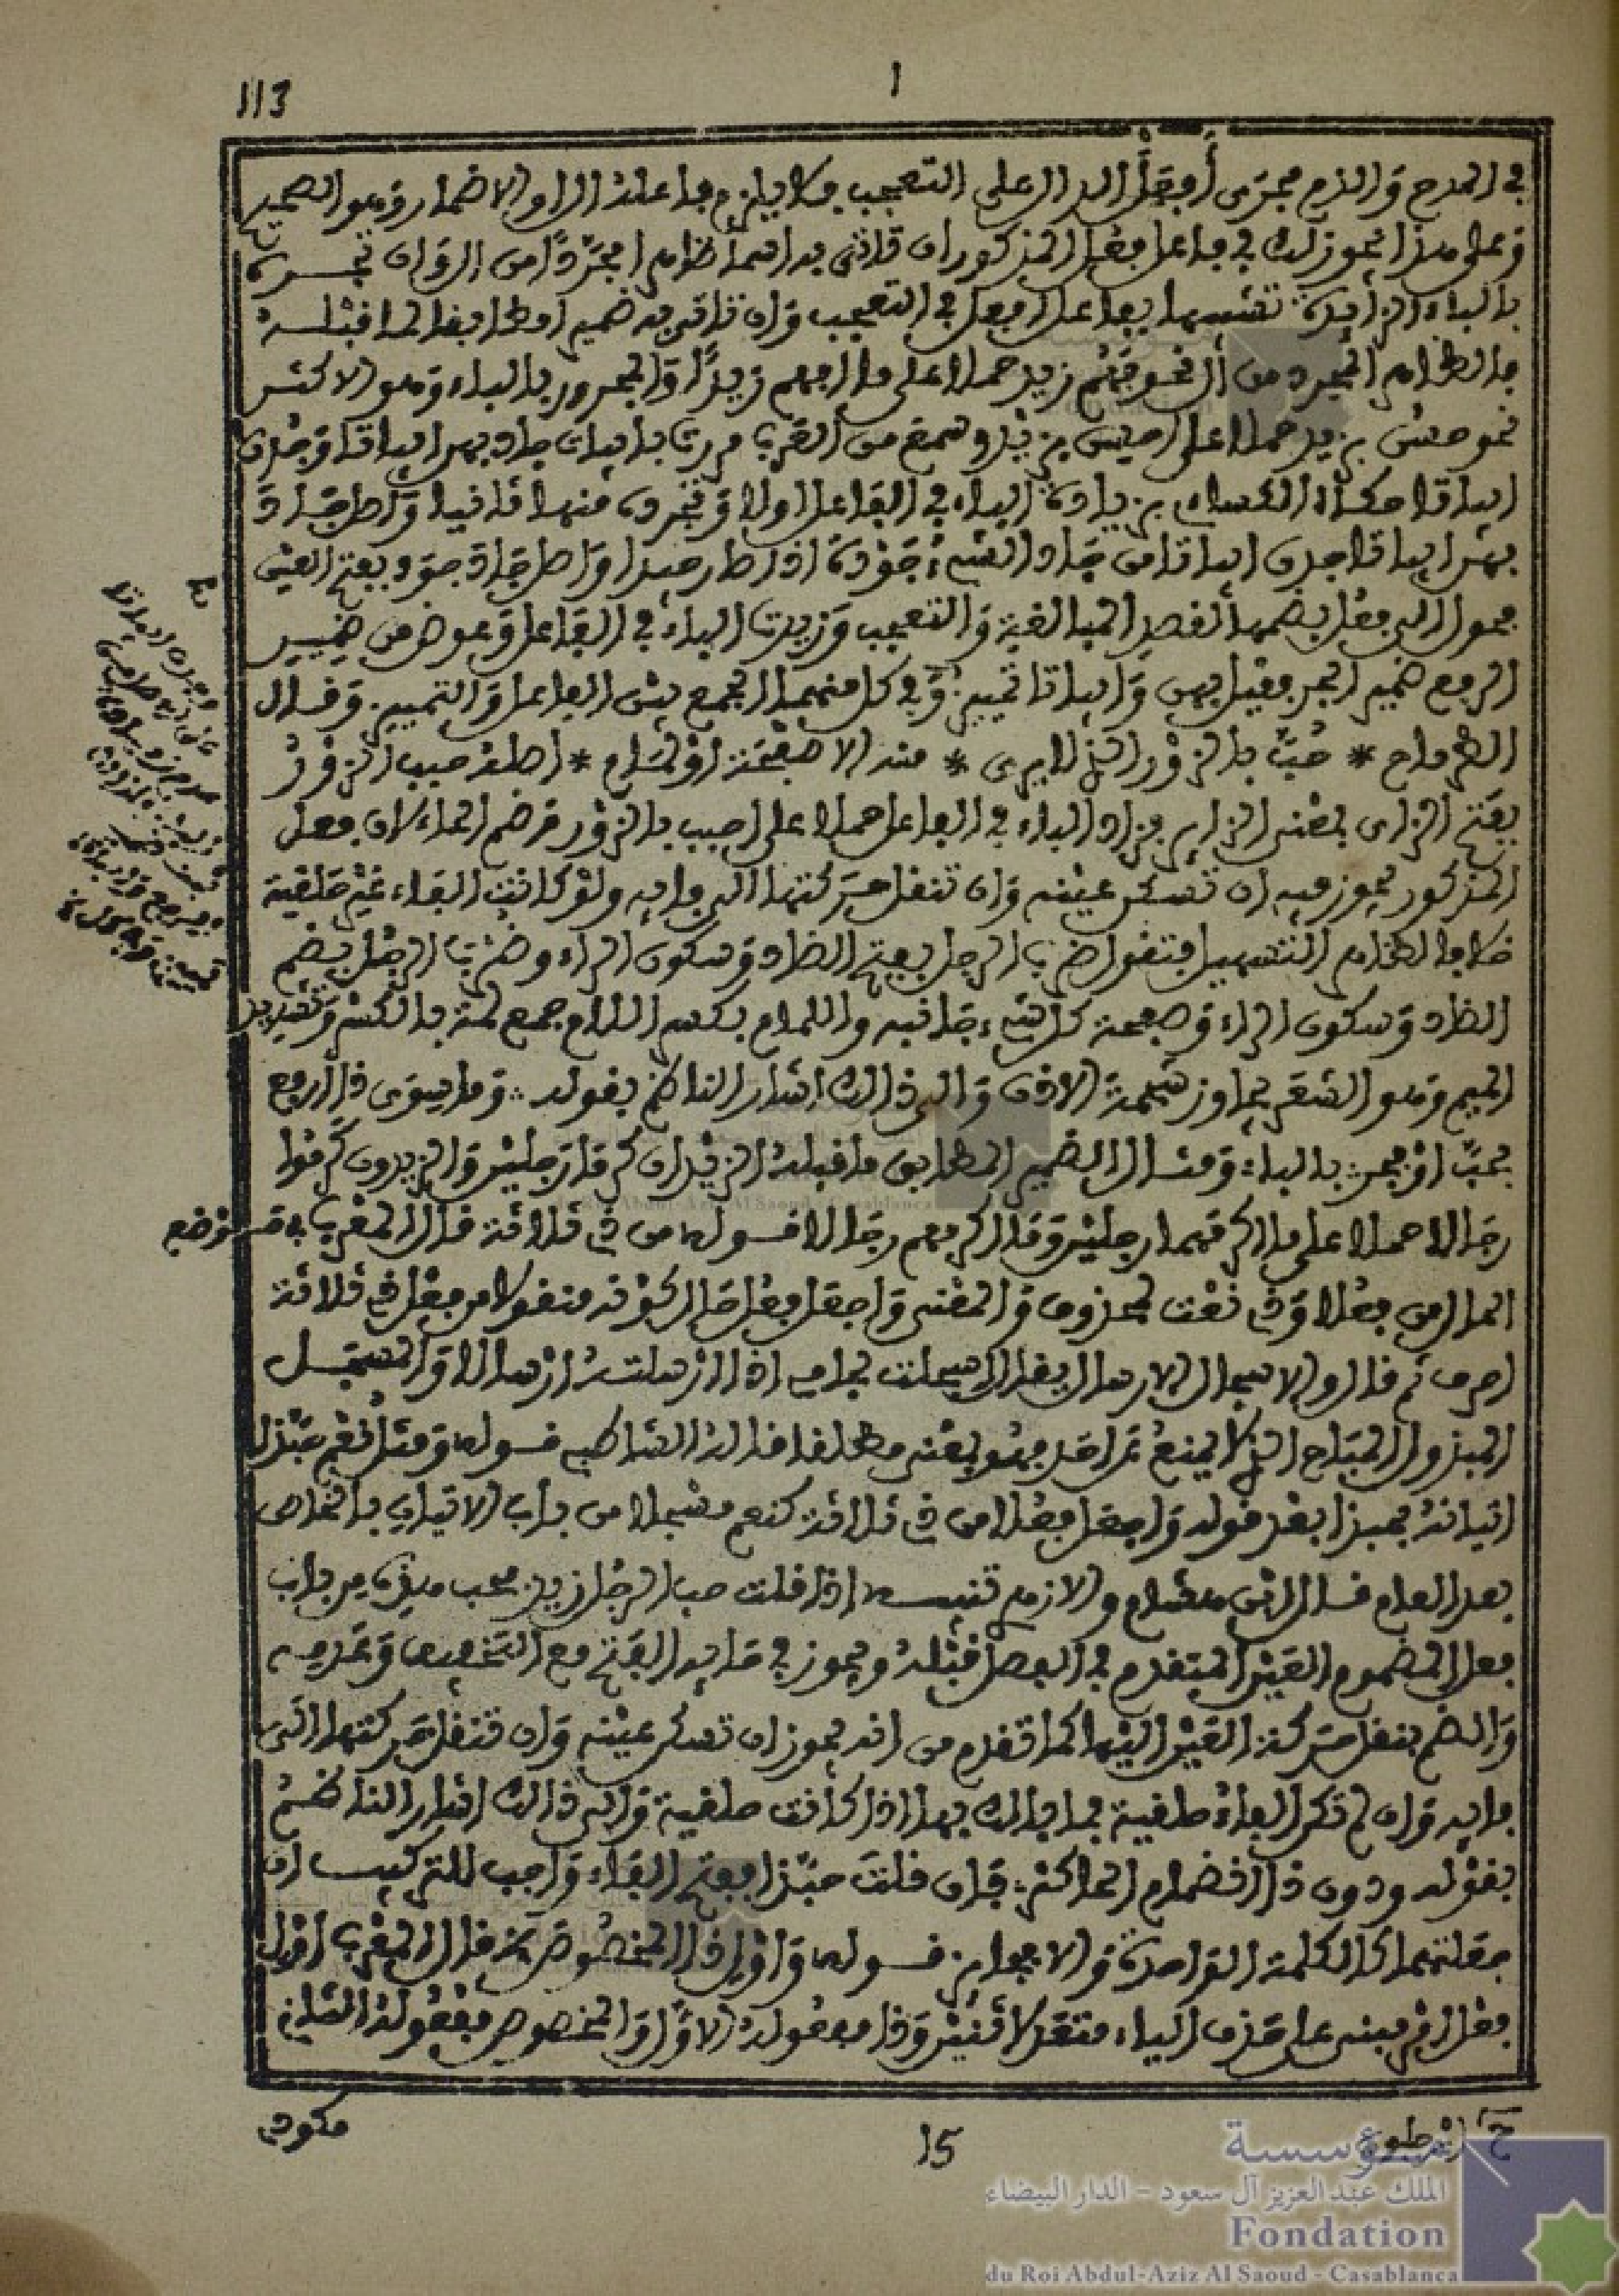 113
1
في المدح والذم مجرى أفعل الدال على التعجب فلا يلزم فاعله ال او الاضمار وهو الصحيح
وعلى هذا يجوز لك في فاعل فعل المذكور ان تاتي به اسما ظاهرا مجردا من ال وان تجره
بالباء الزايدة تشبيها بفاعل افعل في التعجب وان تاتي به ضميرا مطابقا لما قبله
فالظاهر المجرد من أل نحو فهم زيد حملا على ما افهم زيدا والمجرور بالباء وهو الاكثر
نحو حسن بزيد حملا على احسن بزيد وسمع من العرب مررت بابيات جاد بهن ابياتا وجدن
ابياتا حكاه الكساءي بزيادة الباء في الفاعل اولا وتجرده منها ثانيا واصل جاد
بهن ابياتا وجدن ابياتا من جاد الشيء جودة اذا صار جيدا واصل جاد جود بفتح العين
فحول الى فعل بضمها لقصد المبالغة والتعجب وزيدت الباء في الفاعل وعوض من ضمير
الرفع ضمير الجر فقيل بهن وابياتا تمييز وفي كل منهما الجمع بين الفاعل والتمييز وقال
الطرماح * حب بالزور الذي لا يرى * منه الا صفحة او لمام * اصله حبب الزور
بفتح الزاي بمعنى الزاير فزاد الباء في الفاعل حملا على احبب بالزور فضم الحاء لان فعل
المذكور يجوز فيه ان تسكن عينه وان تنقل حركتها الى فايه ولو كانت الفاء غير حلقية
خلافا لظاهر التسهيل فتقول ضرب الرجل بفتح الضاد وسكون الراء وضرب الرجل بضم
الضاد وسكون الراء وصفحة كل شيء جانبه واللمام بكسر اللام جمع لمة بالكسر وتشديد
الميم وهو الشعر يجاوز شحمة الاذن والى ذالك اشار الناظم بقوله وما سوى ذا ارفع
بحب او فجر بالباء ومثال الضمير المطابق ما قبله الزيدان كرما رجلين والزيدون كرموا
رجالا حملا على ما اكرمهما رجلين وما اكرمهم رجالا قوله من ذي ثلاثة قال المعرب في موضع
الحال من فعلا وذي نعت لمحذوف والمعنى واجعل فعل حال كونه منقولا من فعل ذي ثلاثة
احرف ثم قال والاسجال الارسال يقال اسجلت لجاميه اذا ارسلته ارسالا والمسجل
المبذول المباح الذي لا يمنع من احد فهو بمعنى مطلقا قاله الشاطبي قوله ومثل نعم حبذا
اتيانه بحبذا بعد قوله واجعل فعلا من ذي ثلاثة كنعم مسجلا من باب الاتيان بالخاص
بعد العام قال ابن هشام واللازم تنبيه اذا قلت حب الرجل زيد فحب هذه من باب
فعل المضموم العين المتقدم في الفصل قبله ويجوز في فايه الفتح مع التخفيف وعدمه
والضم بنقل حركة العين اليها كما تقدم من انه يجوز ان تسكن عينه وان تنقل حركتها الى
فايه وان لم تكن الفاء حلقية فما بالك بها اذا كانت حلقية والى ذالك اشار الناظم
بقوله ودون ذا انضمام الحا كثر فان قلت حبذا ففتح الفاء واجب للتركيب ان
جعلتهما كالكلمة الواحدة والا فجايز قوله واول ذا المخصوص الخ قال المعرب اول
فعل امر مبني على حذف الياء متعد لاثنين وذا مفعوله الاول والمخصوص مفعوله الثاني
ح ازطو
15
مكودي
مؤسسة
الملك عبد العزيز آل سعود - الدار البيضاء
Fondation
du Roi Abdul-Aziz Al Saoud - Casablanca